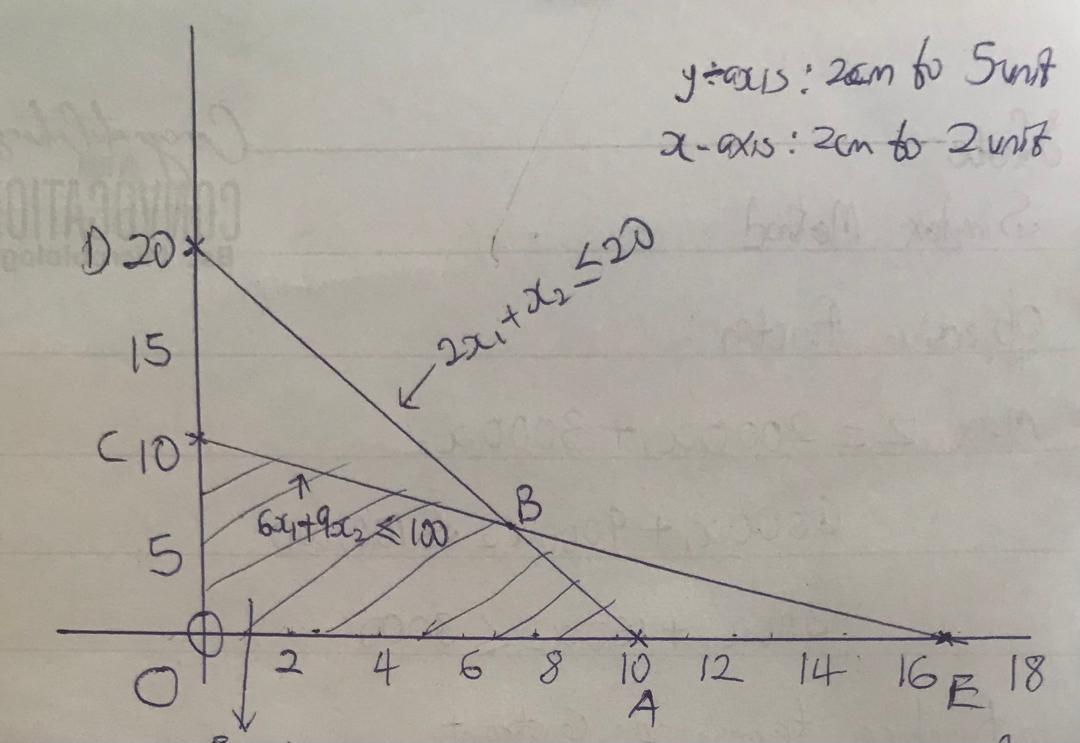 y-axis: 2cm to 5unit
x-axis: 2cm to 2 unit
D 20
2x₁+x₂≤20
15
C 10
B
6x₁+9x₂≤100
5
O
2 4 6 8 10 12 14 16 18
A E